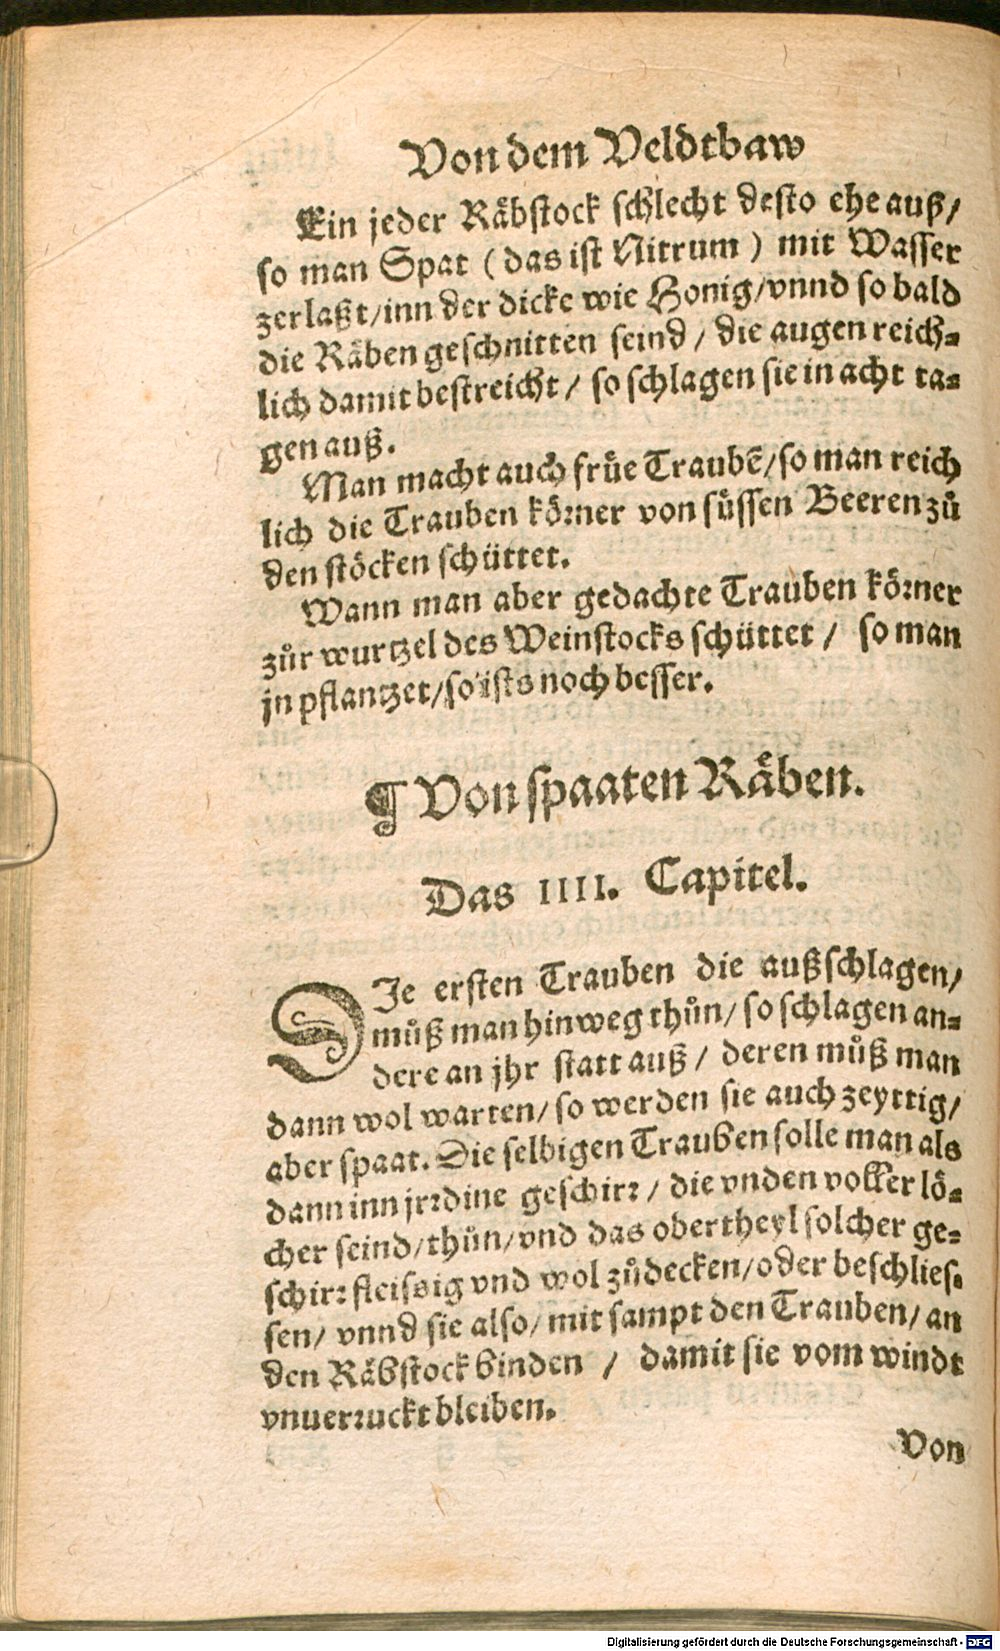 Von dem Veldtbaw
Ein jeder Räbstock schlecht desto ehe auß/
so man Spat (das ist Nitrum) mit Wasser
zerlaßt/inn der dicke wie Honig/vnnd so bald
die Räben geschnitten seind/ die augen reich-
lich damit bestreicht/ so schlagen sie in acht ta-
gen auß.
Man macht auch früe Traubē/so man reich
lich die Trauben körner von süssen Beeren zů
den stöcken schüttet.
Wann man aber gedachte Trauben körner
zůr wurtzel des Weinstocks schüttet/ so man
jn pflantzet/so ists noch besser.
¶ Von spaaten Räben.
Das IIII. Capitel.
DIe ersten Trauben die außschlagen/
můß man hinweg thůn/ so schlagen an-
dere an jhr statt auß/ deren můß man
dann wol warten/ so werden sie auch zeyttig/
aber spaat. Die selbigen Trauben solle man als
dann inn jrrdine geschirr/ die vnden voller lö-
cher seind/thůn/vnd das obertheyl solcher ge-
schirr fleissig vnd wol zůdecken/oder beschlies-
sen/ vnnd sie also/ mit sampt den Trauben/ an
den Räbstock binden / damit sie vom windt
vnuerruckt bleiben.
Von
Digitalisierung gefördert durch die Deutsche Forschungsgemeinschaft - DFG